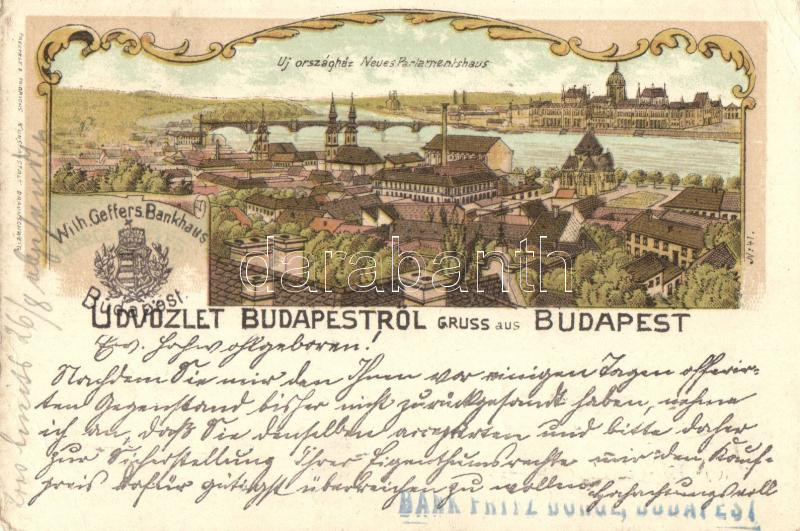 Uj országház Neues Parlamentshaus
Wilh. Geffers Bankhaus
Budapest.
No 41.
darabanth
ÜDVÖZLET BUDAPESTRŐL GRUSS aus BUDAPEST
Ew. Hochwohlgeboren!
Nachdem Sie mir den Ihnen vor einigen Tagen offerir-
ten Gegenstand bisher nicht zurückgesandt haben, nehme
ich an, daß Sie denselben acceptirten und bitte daher
zur Sicherstellung Ihrer Eigenthumsrechte mir den Kauf-
preis dafür gütigst überreichen zu wollen. Hochachtungsvoll
BANK FRITZ DÖRGE, BUDAPEST